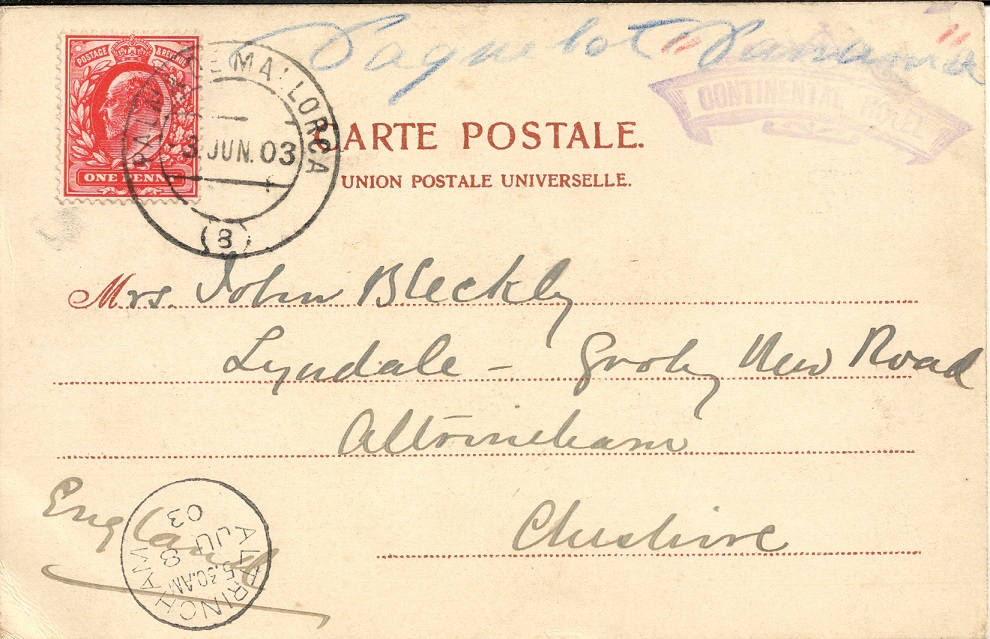 Paquebot Panama
CONTINENTAL HOTEL
POSTAGE & REVENUE
ONE PENNY
PALMA DE MALLORCA
3 JUN. 03
(8)
CARTE POSTALE.
UNION POSTALE UNIVERSELLE.
Mrs. John Bleckly
Lyndale - Groby New Road
Altrincham
Cheshire
England
ALTRINCHAM
5.30.AM
JU 8
03